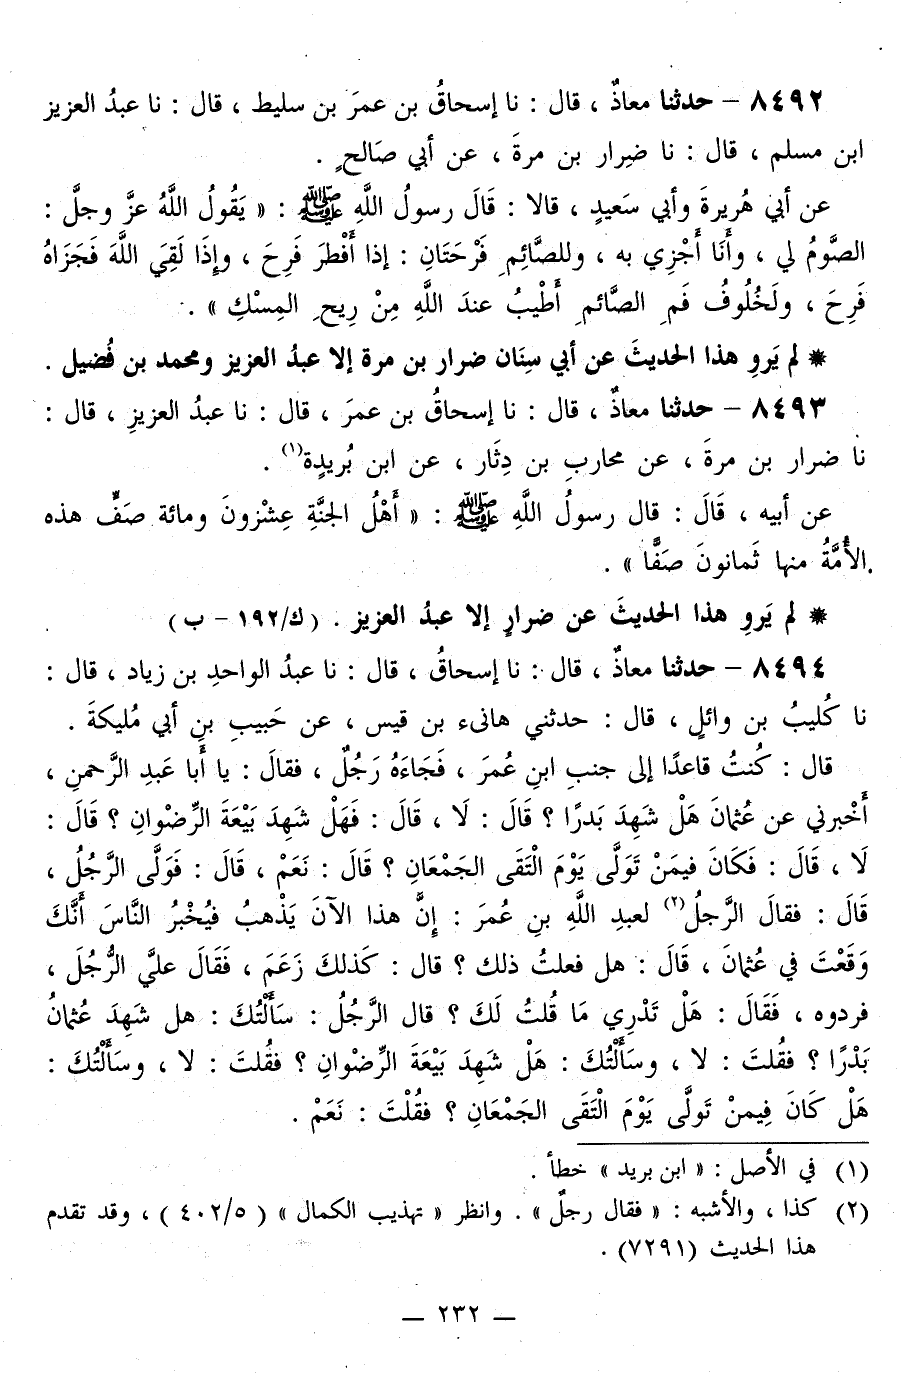 ٨٤٩٢ – حدثنا معاذٌ ، قال : نا إسحاقُ بن عمرَ بن سليط ، قال : نا عبدُ العزيز
ابن مسلم ، قال : نا ضِرار بن مرةَ ، عن أبي صَالحٍ .
عن أبي هُريرةَ وأبي سَعيدٍ ، قالا : قَالَ رسولُ اللَّهِ ﷺ : « يَقُولُ اللَّهُ عزَّ وجلَّ :
الصَّومُ لي ، وأَنَا أَجْزِي به ، وللصَّائِمِ فَرْحَتَانِ : إذا أَفْطَرَ فَرِحَ ، وإِذَا لَقِيَ اللَّهَ فَجَزَاهُ
فَرِحَ ، ولَخُلُوفُ فَمِ الصَّائمِ أَطْيبُ عندَ اللَّهِ مِنْ رِيحِ المِسْكِ » .
* لم يَروِ هذا الحديثَ عن أبي سِنَان ضرار بن مرة إلا عبدُ العزيز ومحمد بن فُضيل .
٨٤٩٣ – حدثنا معاذٌ ، قال : نا إسحاقُ بن عمرَ ، قال : نا عبدُ العزيزِ ، قال :
نا ضرار بن مرةَ ، عن محاربِ بن دِثَار ، عن ابن بُريدة(١) .
عن أبيه ، قَالَ : قال رسولُ اللَّهِ ﷺ : « أَهْلُ الجنَّةِ عِشْرونَ ومائة صَفٍّ هذه
الأُمَّةُ منها ثَمانونَ صَفًّا » .
* لم يَروِ هذا الحديثَ عن ضرارٍ إلا عبدُ العزيز . (ك/١٩٢ – ب)
٨٤٩٤ – حدثنا معاذٌ ، قال : نا إسحاقُ ، قال : نا عبدُ الواحدِ بن زياد ، قال :
نا كُليبُ بن وائلٍ ، قال : حدثني هانىء بن قيس ، عن حَبيبِ بنِ أبي مُليكةَ .
قال : كُنتُ قاعدًا إلى جنبِ ابنِ عُمرَ ، فَجَاءَهُ رَجُلٌ ، فقالَ : يا أَبا عَبدِ الرَّحمنِ ،
أَخْبرني عن عُثمانَ هَلْ شَهِدَ بَدرًا ؟ قَالَ : لَا ، قَالَ : فَهَلْ شَهِدَ بَيْعَةَ الرِّضْوانِ ؟ قَالَ :
لَا ، قَالَ : فَكَانَ فيمَنْ تَوَلَّى يَوْمَ الْتَقَى الجَمْعَانِ ؟ قَالَ : نَعَمْ ، قَالَ : فَوَلَّى الرَّجُلُ ،
قَالَ : فقالَ الرَّجلُ(٢) لعبدِ اللَّهِ بنِ عُمرَ : إِنَّ هذا الآنَ يَذْهبُ فيُخْبُر النَّاسَ أَنَّكَ
وَقَعْتَ في عُثمانَ ، قَالَ : هل فعلتُ ذلك ؟ قال : كَذلكَ زَعَمَ ، فَقَالَ عليَّ الرَّجُلَ ،
فردوه ، فَقَالَ : هَلْ تَدْرِي مَا قُلتُ لَكَ ؟ قال الرَّجُلُ : سَأَلْتُكَ : هل شَهِدَ عُثمانُ
بَدْرًا ؟ فقُلتَ : لا ، وسَأَلْتُكَ : هَلْ شَهِدَ بَيْعَةَ الرِّضْوانِ ؟ فقُلتَ : لا ، وسَأَلْتُكَ :
هَلْ كَانَ فِيمنْ تَولَّى يَوْمَ الْتَقَى الجَمْعَانِ ؟ فقُلْتَ : نَعَمْ .
(١) في الأصل : « ابن بريد » خطأ .
(٢) كذا ، والأشبه : « فقال رجلٌ » . وانظر « تهذيب الكمال » (٤٠٢/٥) ، وقد تقدم
هذا الحديث (٧٢٩١) .
– ٢٣٢ –